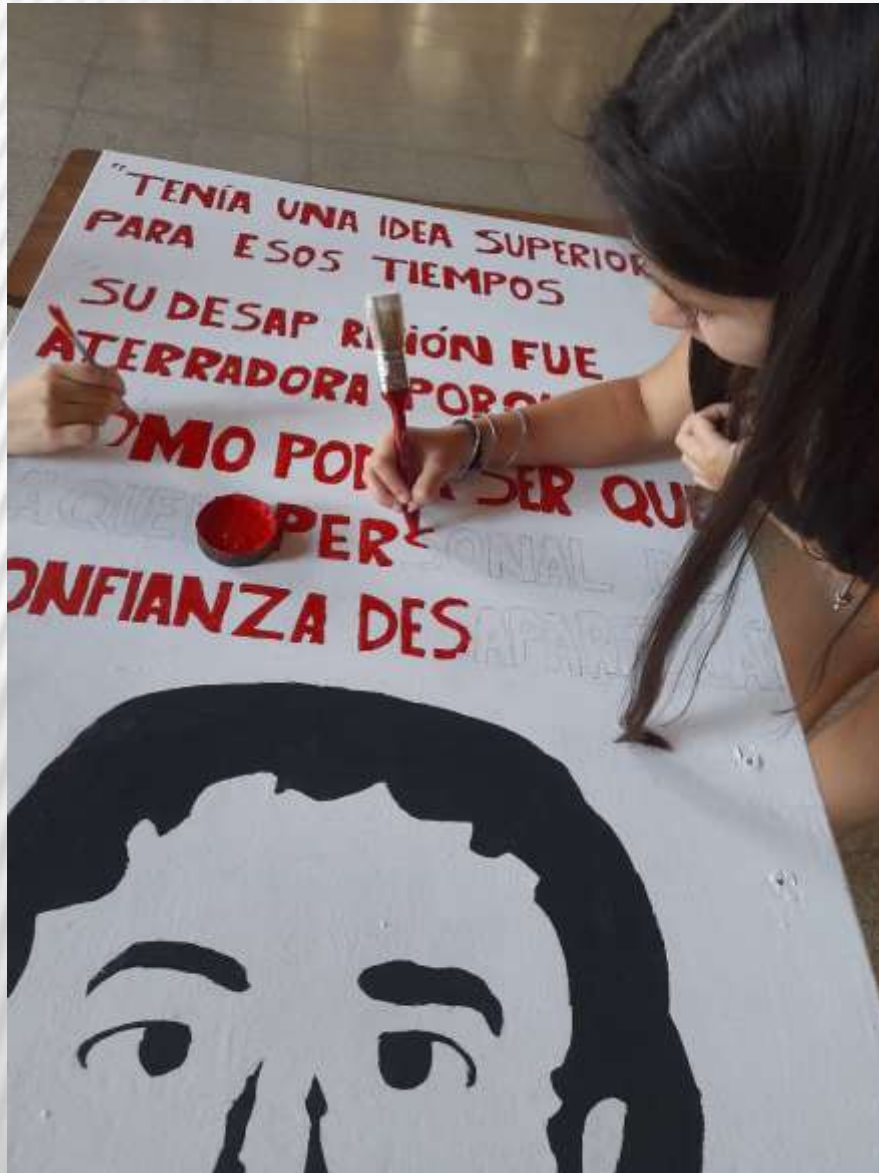 "TENÍA UNA IDEA SUPERIOR
PARA ESOS TIEMPOS
SU DESAP RICIÓN FUE
ATERRADORA
OMO PODÍA SER QUE
AQUEL PERSONAL DE
ONFIANZA DESAPAREZCA